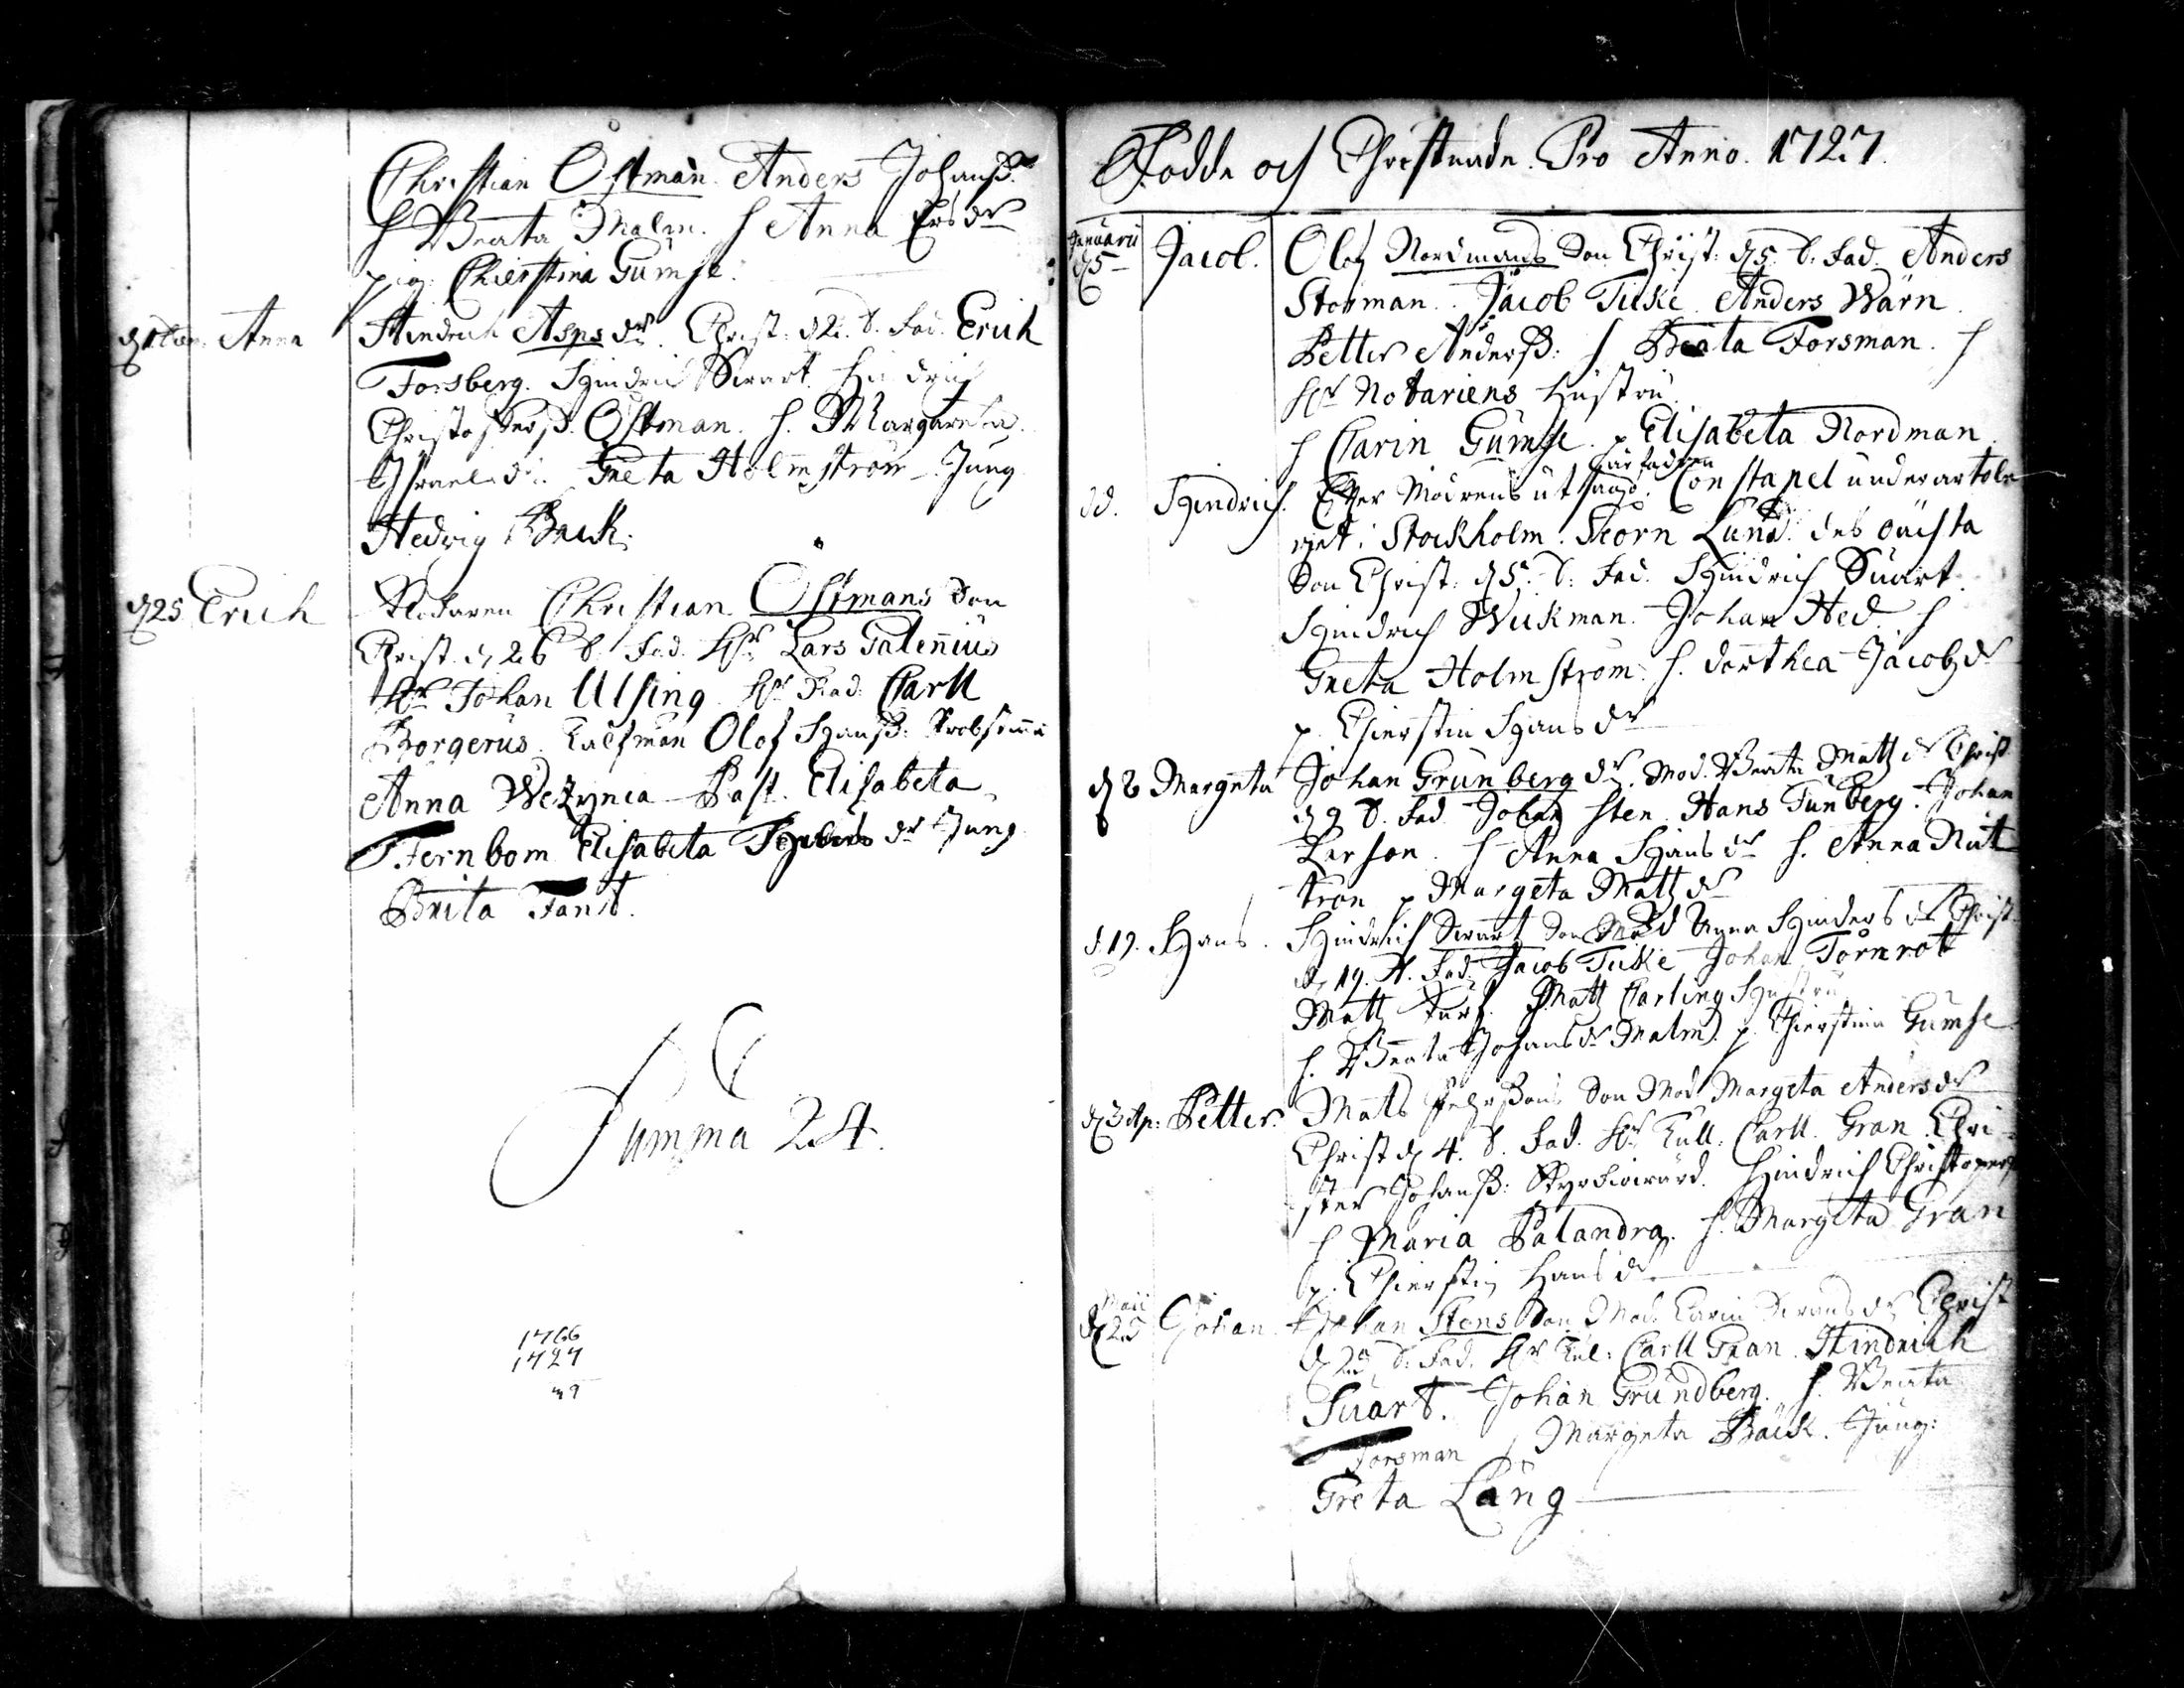 Christian Ostman. Anders Johanß.
h Beata Malm. h Anna Ersdr
pig: Chierstina Gumse.
Anna Hindrich Asps dr. Christ: d 2. d. Fad. Erich
Forsberg. Hindrich Swart. Hindrich
Christofferß. Ostman. h. Margareta
Israels dr. Greta Holmström. Jung
Hedvig Back.
d 25 Erich Notarien Christian Ostmans Son
Christ. d. 26 d. Fad. Hr Lars Galenius
Hr Johan Ulsing. Hr Rad: Carll
Borgerus. Kaufman Olof Hanß:
Anna Past. Elisabeta
Fernbom Elisabeta dr Jung
Brita Fant.
Summa 24.
1766
1727
39
Födde och Christnade Pro Anno. 1727.
Januarii
d 5 Jacob. Olof Nordmans Son Christ: d 5. d. Fad. Anders
Storman. Jacob Ticke. Anders Wärn.
Petter Anderß: h Beata Forsman. h
Hr Notariens Hustru.
h Carin Gumse. p Elisabeta Nordman.
är fadren
dd. Hindrich. Efter Modrens utsago. Constapel under artole
riet i Stockholm. Lund. des oächta
Son Christ: d 5. d. Fad. Hindrich Suart.
Hindrich Wickman. Johan Hed. h
Greta Holmström. h. Dorthea Jacobz dr
p. Chierstin Hans dr
d 8 Margreta Johan Grunberg dr. Mod. Beata Matz dr Christ
d 9 d. Fad. Johan Sten. Hans Tunberg. Johan
Larson. h Anna Hans dr h. Anna
p Margeta Matz dr
d. 19. Hans. Hindrich Swart Son Mod Agna Hinders dr Christ
d. 19. Fad. Jacob Ticke Johan Törnrot
Matz Matz Carling Hustru
h. Beata Johans dr Malm. p. Chierstin Gumse
d 3 Ap: Petter. Mats Pehrßons Son Mod Margeta Anders dr
Christ d 4. d. Fad. Hr Kull: Carll Gran. Chri-
ster Johanß: Hindrich Christopers
h Maria Palandra. h. Margeta Gran
p. Chierstin Hans dr
Maii
d 25 Johan Johan Stens Son Mod. Karin dr Christ
d 25 d. Fad. Hr Kul: Carll Gran. Hindrich
Suart. Johan Grundberg. h. Beata
Forsman h Margreta Bäck. Jung:
Greta Lång